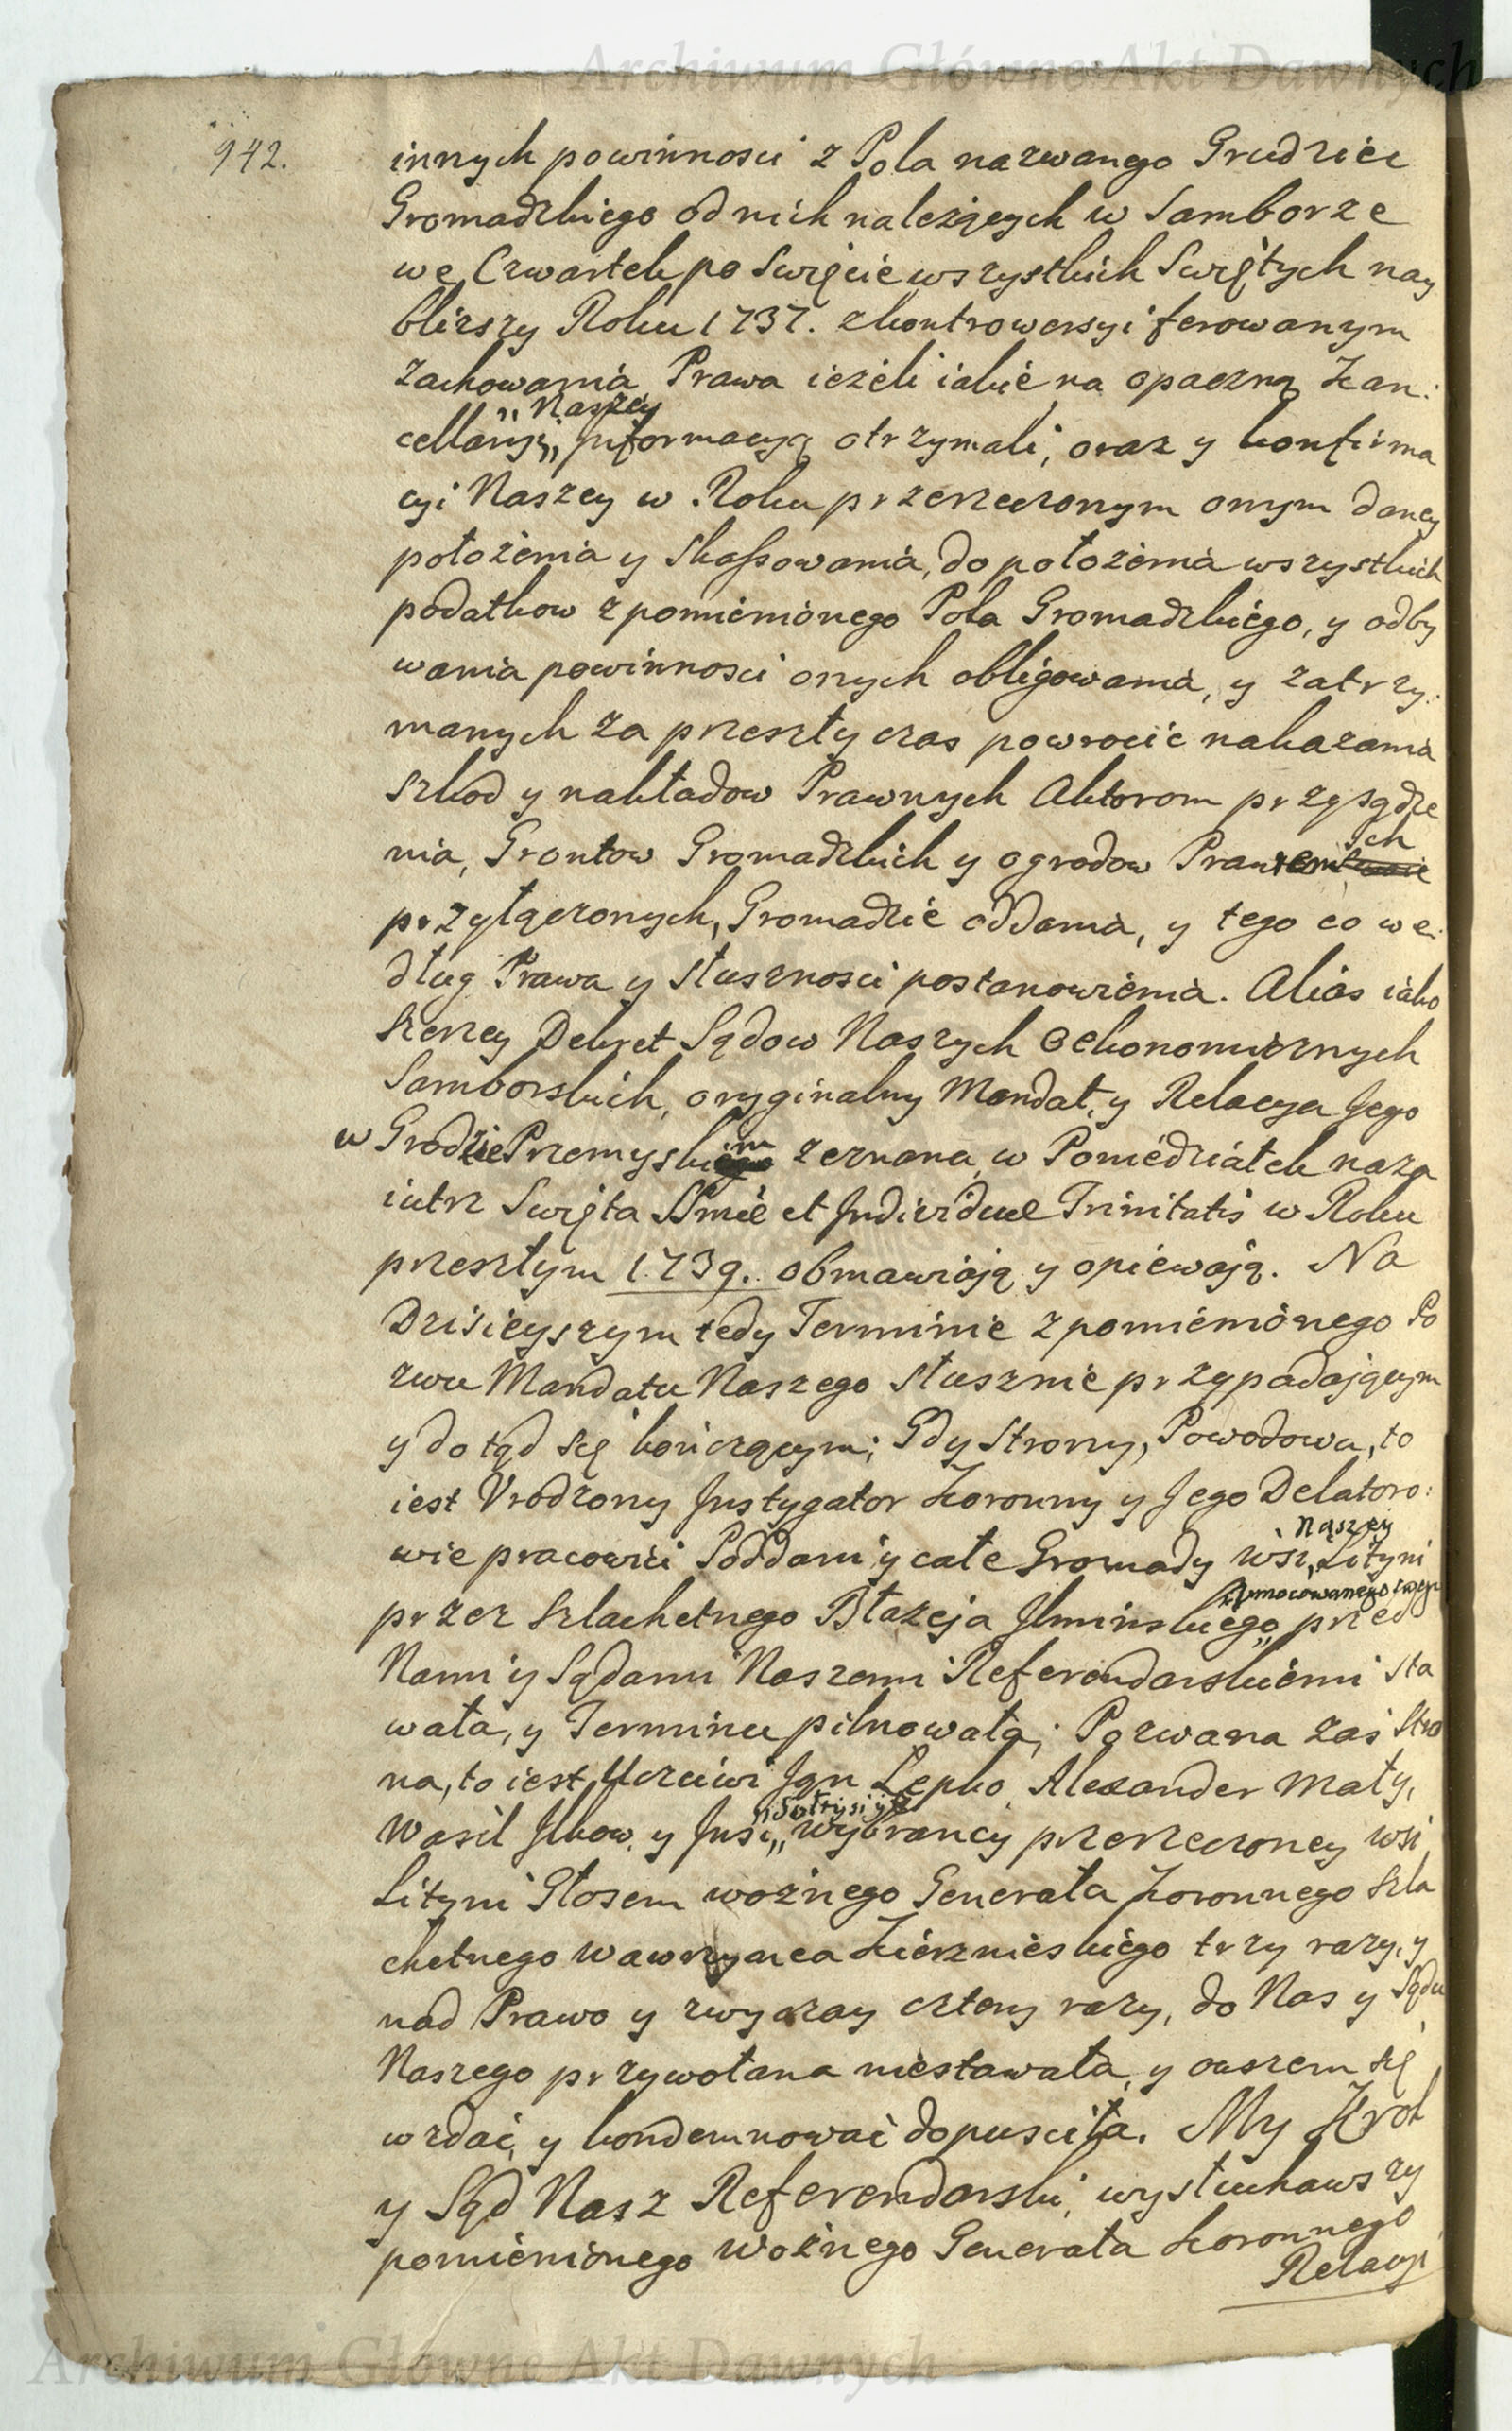 Archiwum Główne Akt Dawnych
942.
innych powinnosci z Pola nazwanego Grudziec
Gromadzkiego od nich należących w Samborze
we Czwartek po Swięcie wszystkich Swiętych nay
blizszy Roku 1737. z kontrowersyi ferowanym
zachowania Prawa ieżeli iakie na opaczną Kan:
"Naszey
cellaryi" informacyą otrzymali, oraz y konfirma
cyi Naszey w Roku przerzeczonym onym daney
położenia y skassowania, do położenia wszystkich
podatkow z pomienionego Pola Gromadzkiego, y odby
wania powinnosci onych obligowania, y zatrzy:
manych za przeszły czas powrocic nakazania
szkod y nakładow Prawnych Aktorom przysądze
nia, Grontow Gromadzkich y ogrodow
przyłączonych, Gromadzie oddania, y tego co we:
dług Prawa y słusznosci postanowienia. Alias iako
szerzey Dekret Sądow Naszych Oekonomicznych
Samborskich, oryginalny Mandat, y Relacya Jego
w Grodzie Przemyskim zeznana, w Poniedziałek naza
iutrz Swięta SSmæ et Individuæ Trinitatis w Roku
przeszłym 1739. obmawiaią y opiewaią. Na
Dzisieyszym tedy Terminie z pomienionego Po
zwu Mandatu Naszego słusznie przypadaiącym
y do tąd się kończącym; Gdy Strony, Powodowa, to
iest Vrodzony Instygator Koronny y Jego Delatoro:
Naszey
wie pracowici Poddani y całe Gromady wsi, Lityni
Umocowanego swego
przez Szlachetnego Błażeja Ilminskiego" przed
Nami y Sądami Naszemi Referendarskiemi sta
wała, y Terminu pilnowała; Pozwana zaś Stro
na, to iest Uczciwi Jan Lepko, Alexander Mały,
"Sołtysi y
Wasil Ilkow, y Insi" wybrancy przerzeczoney wsi
Lityni Głosem woźnego Generała Koronnego Szla
chetnego Wawrzynca Kierznieskiego trzy razy, y
nad Prawo y zwyczay cztery razy, do Nas y Sądu
Naszego przywołana niestawała, y owszem się
wzdać y kondemnować dopusciła. My Krol
y Sąd Nasz Referendarski, wysłuchawszy
pomienionego woźnego Generała Koronnego
Relacyi
Archiwum Główne Akt Dawnych